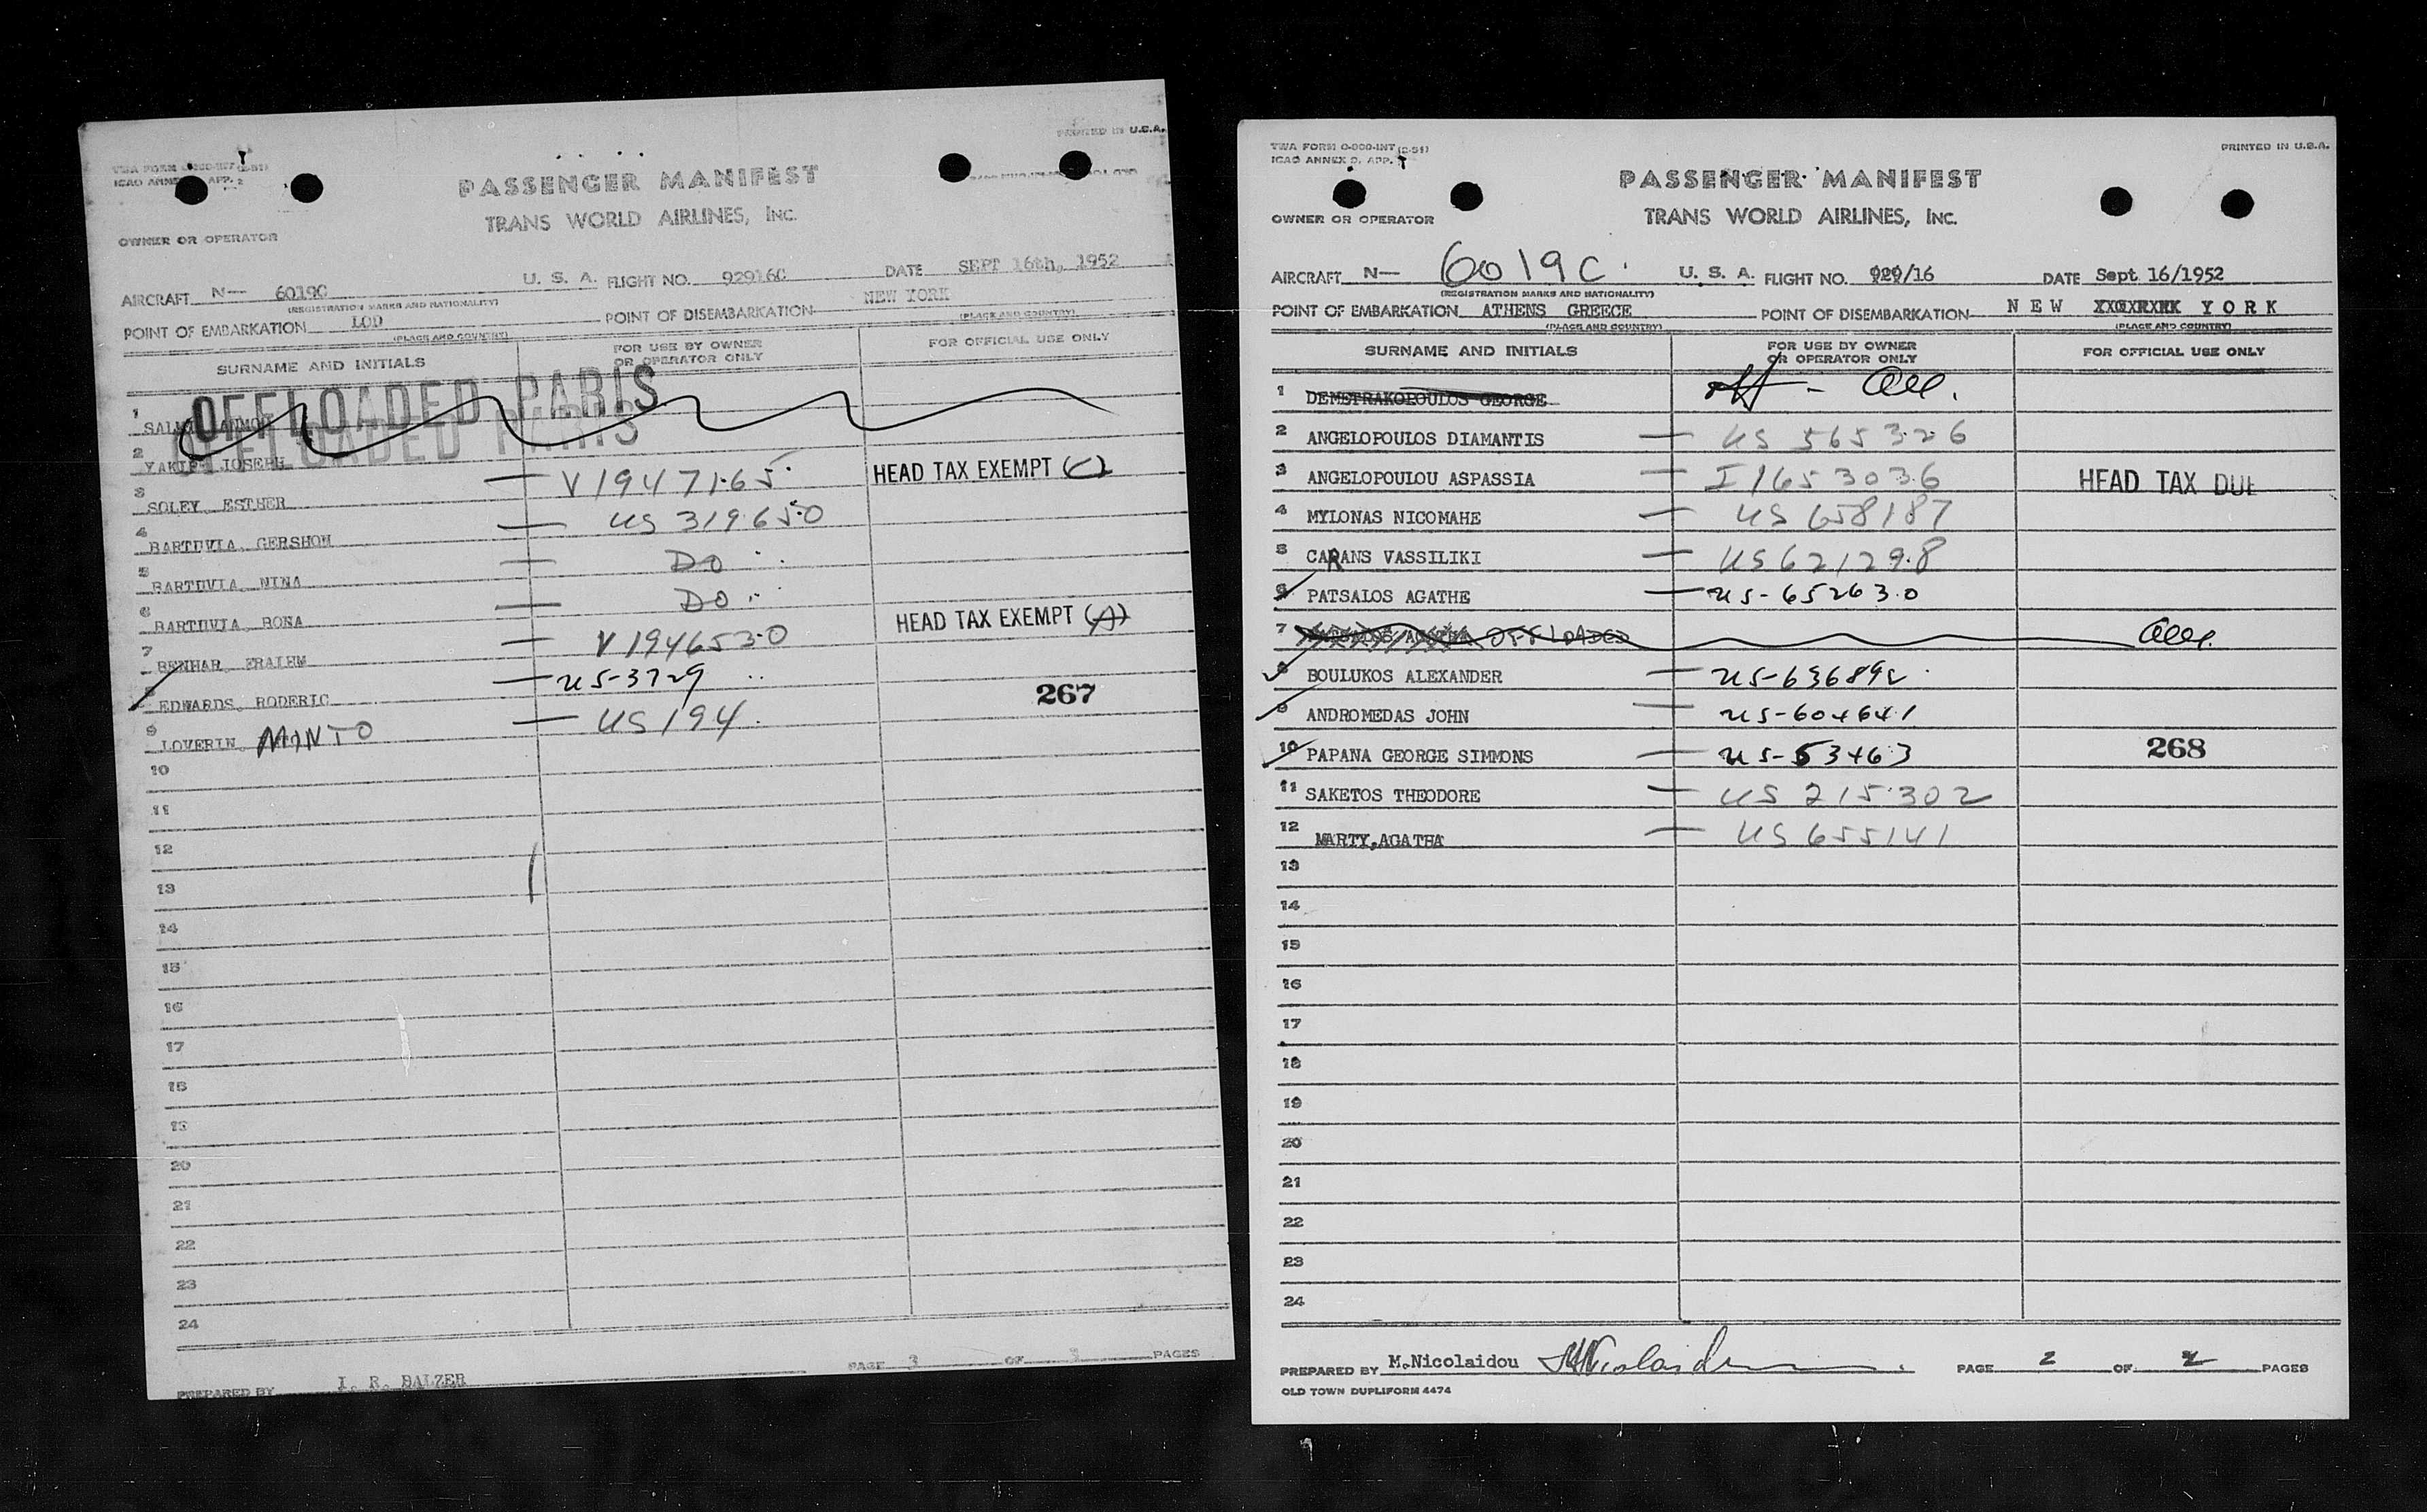 PRINTED IN U.S.A.
ICAO ANNEX 9, APP. 2
PASSENGER MANIFEST
TRANS WORLD AIRLINES, INC.
OWNER OR OPERATOR
AIRCRAFT N— 6019C U. S. A. FLIGHT NO. 92916C DATE SEPT 16th, 1952
(REGISTRATION MARKS AND NATIONALITY)
POINT OF EMBARKATION LOD POINT OF DISEMBARKATION NEW YORK
(PLACE AND COUNTRY) (PLACE AND COUNTRY)
SURNAME AND INITIALS FOR USE BY OWNER OR OPERATOR ONLY FOR OFFICIAL USE ONLY
OFFLOADED PARIS
OFFLOADED PARIS
1
2 JOSEPH
3 SOLEY, ESTHER — V1947165 HEAD TAX EXEMPT (C)
4 BARTUVIA, GERSHOM — US 319650
5 BARTUVIA, NINA — DO
6 BARTUVIA, RONA — DO
7 BENHAR, — V1946530 HEAD TAX EXEMPT (A)
8 EDWARDS, RODERIC — US-3729
9 LOVERIN, MINTO — US 194
267
10
11
12
13
14
15
16
17
18
19
20
21
22
23
24
PREPARED BY I. R. BALZER PAGE 3 OF 3 PAGES
TWA FORM O-900-INT (2-51)
ICAO ANNEX 9, APP.
PRINTED IN U.S.A.
PASSENGER MANIFEST
TRANS WORLD AIRLINES, INC.
OWNER OR OPERATOR
AIRCRAFT N— 6019C. U. S. A. FLIGHT NO. 929/16 DATE Sept 16/1952
(REGISTRATION MARKS AND NATIONALITY)
POINT OF EMBARKATION ATHENS GREECE POINT OF DISEMBARKATION NEW YORK
(PLACE AND COUNTRY) (PLACE AND COUNTRY)
SURNAME AND INITIALS FOR USE BY OWNER OR OPERATOR ONLY FOR OFFICIAL USE ONLY
1 DEMETRAKOPOULOS GEORGE
2 ANGELOPOULOS DIAMANTIS — US 565326
3 ANGELOPOULOU ASPASSIA — I1653036 HEAD TAX DUE
4 MYLONAS NICOMAHE — US 658187
5 CARANS VASSILIKI — US 621298
6 PATSALOS AGATHE — US-652630
7 OFFLOADED
8 BOULUKOS ALEXANDER — US-636892
9 ANDROMEDAS JOHN — US-604641
10 PAPANA GEORGE SIMMONS — US-53463 268
11 SAKETOS THEODORE — US 215302
12 MARTY,AGATHA — US 655141
13
14
15
16
17
18
19
20
21
22
23
24
PREPARED BY M.Nicolaidou PAGE 2 OF 2 PAGES
OLD TOWN DUPLIFORM 4474